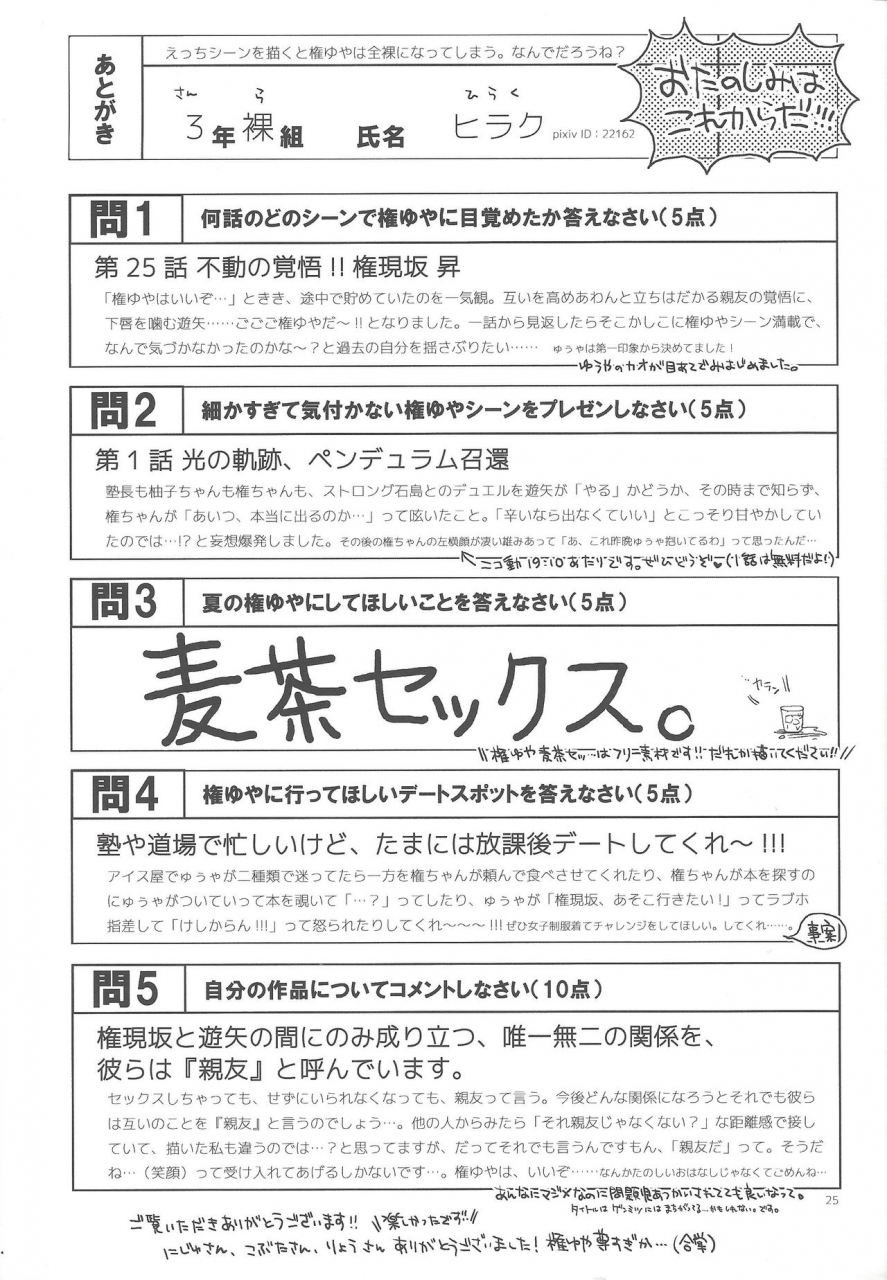 あとがき
えっちシーンを描くと権ゆやは全裸になってしまう。なんでだろうね？
さん ら ひらく
3年裸組 氏名 ヒラク pixiv ID：22162
おたのしみは
これからだ!!!
問1 何話のどのシーンで権ゆやに目覚めたか答えなさい（5点）
第25話 不動の覚悟!! 権現坂 昇
「権ゆやはいいぞ…」ときき、途中で貯めていたのを一気観。互いを高めあわんと立ちはだかる親友の覚悟に、
下唇を噛む遊矢……ごごご権ゆやだ～!!となりました。一話から見返したらそこかしこに権ゆやシーン満載で、
なんで気づかなかったのかな～？と過去の自分を揺さぶりたい…… ゆぅゃは第一印象から決めてました！
ゆうやのカオが目あてでみはじめました。
問2 細かすぎて気付かない権ゆやシーンをプレゼンしなさい（5点）
第1話 光の軌跡、ペンデュラム召還
塾長も柚子ちゃんも権ちゃんも、ストロング石島とのデュエルを遊矢が「やる」かどうか、その時まで知らず、
権ちゃんが「あいつ、本当に出るのか…」って呟いたこと。「辛いなら出なくていい」とこっそり甘やかしてい
たのでは…!?と妄想爆発しました。その後の権ちゃんの左横顔が凄い雄みあって「あ、これ昨晩ゆぅゃ抱いてるわ」って思ったんだ…
ニコ動19:10あたりです。ぜひどうぞ♥（1話は無料だよ!）
問3 夏の権ゆやにしてほしいことを答えなさい（5点）
麦茶セックス。
カラン
権ゆや麦茶セッ…はフリー素材です!! だれか描いてください!!
問4 権ゆやに行ってほしいデートスポットを答えなさい（5点）
塾や道場で忙しいけど、たまには放課後デートしてくれ～!!!
アイス屋でゆぅゃが二種類で迷ってたら一方を権ちゃんが頼んで食べさせてくれたり、権ちゃんが本を探すの
にゅぅゃがついていって本を覗いて「…？」ってしたり、ゅぅゃが「権現坂、あそこ行きたい！」ってラブホ
指差して「けしからん!!!」って怒られたりしてくれ～～～!!! ぜひ女子制服着てチャレンジをしてほしい。してくれ……。
事案
問5 自分の作品についてコメントしなさい（10点）
権現坂と遊矢の間にのみ成り立つ、唯一無二の関係を、
彼らは『親友』と呼んでいます。
セックスしちゃっても、せずにいられなくなっても、親友って言う。今後どんな関係になろうとそれでも彼ら
は互いのことを『親友』と言うのでしょう…。他の人からみたら「それ親友じゃなくない？」な距離感で接し
ていて、描いた私も違うのでは…？と思ってますが、だってそれでも言うんですもん、「親友だ」って。そうだ
ね…（笑顔）って受け入れてあげるしかないです…。権ゆやは、いいぞ……なんかたのしいおはなしじゃなくてごめんね…
あんなにマジメなのに問題児あつかいすれても良いなって。
タイトルはゲンミツにはまちがってる…かもしれない。です。
25
ご覧いただきありがとうございます!! 楽しかったです!!
にじゅさん、こぶたさん、りょうさん ありがとうございました！権ゆや尊すぎか…（合掌）